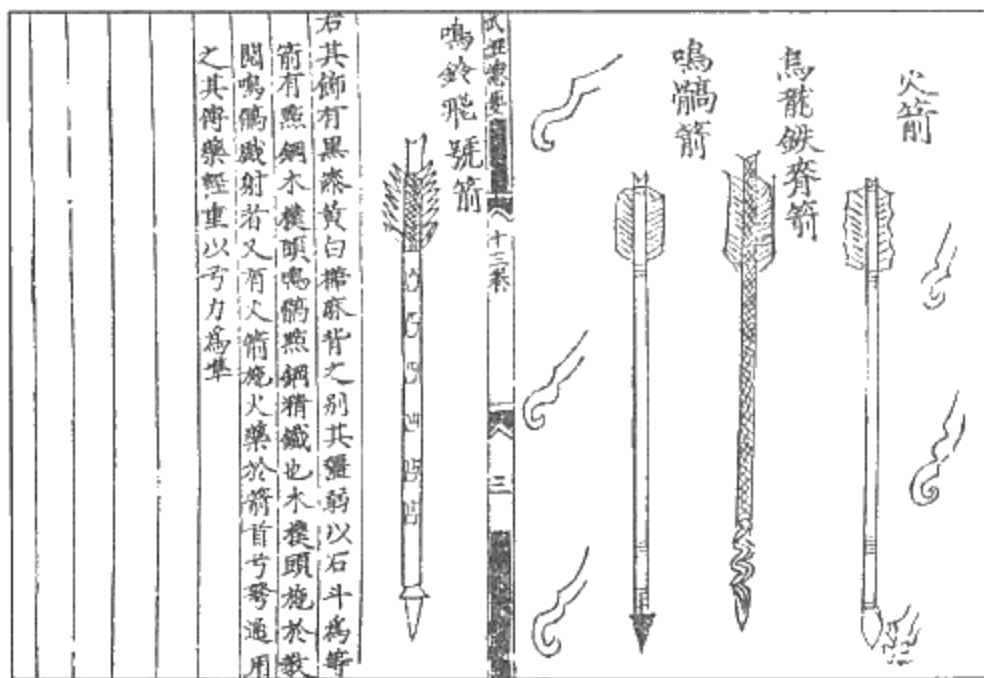 火箭
烏龍鉄脊箭
鳴髇箭
武經總要
十三卷
三
鳴鈴飛號箭
右其飾有黑漆黄白樺麻背之别其彊弱以石斗爲等
箭有㸃鋼木樸頭鳴髇㸃鋼精鐵也木樸頭施於教
閲鳴髇戲射若又有火箭施火藥於箭首弓弩通用
之其傅藥輕重以弓力爲準